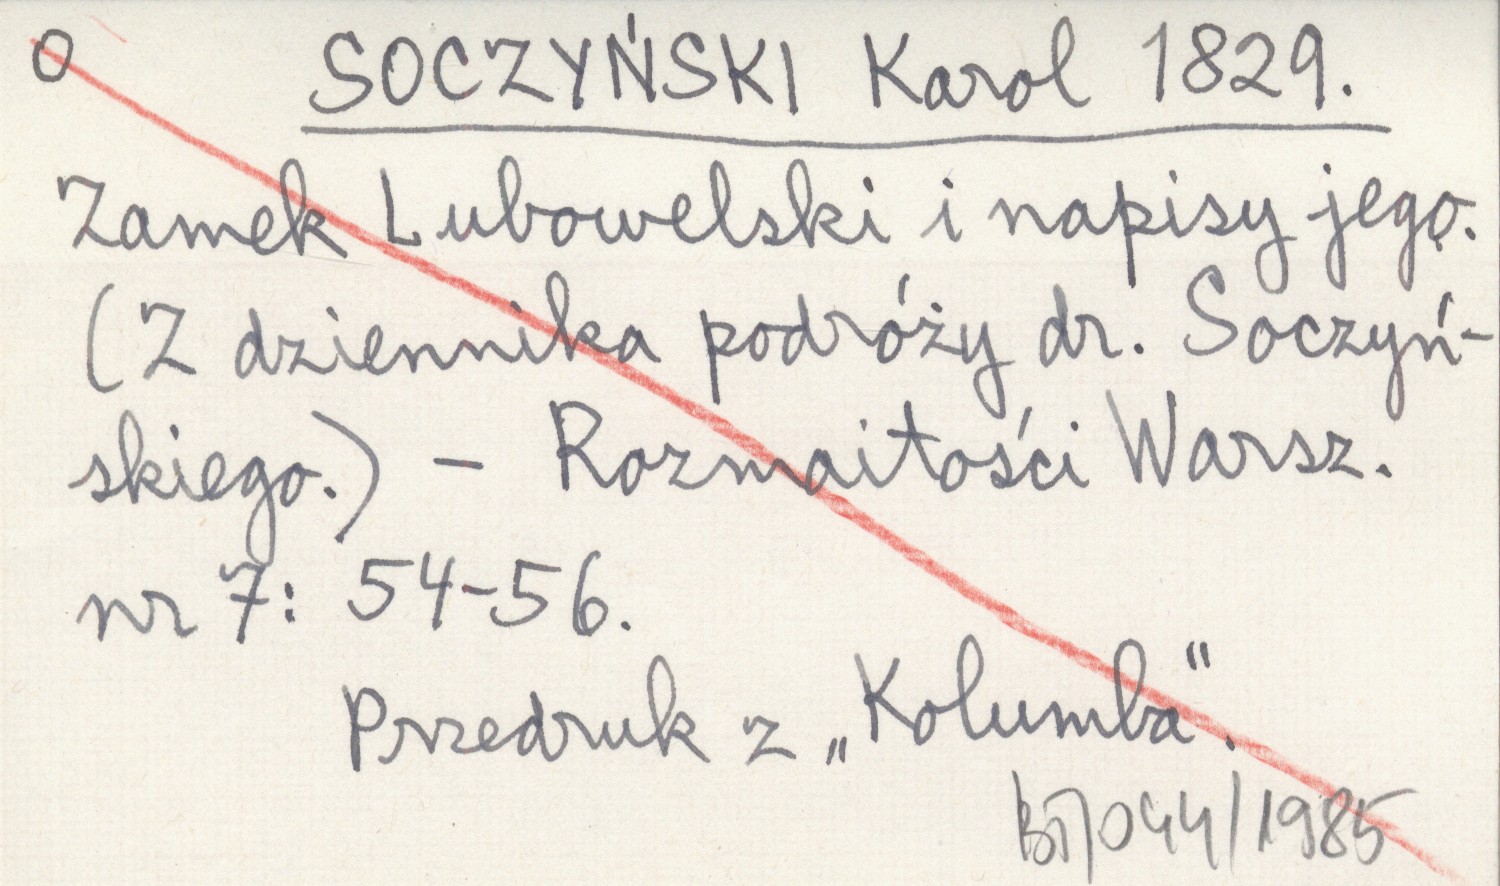 O SOCZYŃSKI Karol 1829.
Zamek Lubowelski i napisy jego.
(Z dziennika podróży dr. Soczyń-
skiego.) - Rozmaitości Warsz.
nr 7: 54-56.
Przedruk z „Kolumba".
044/1985